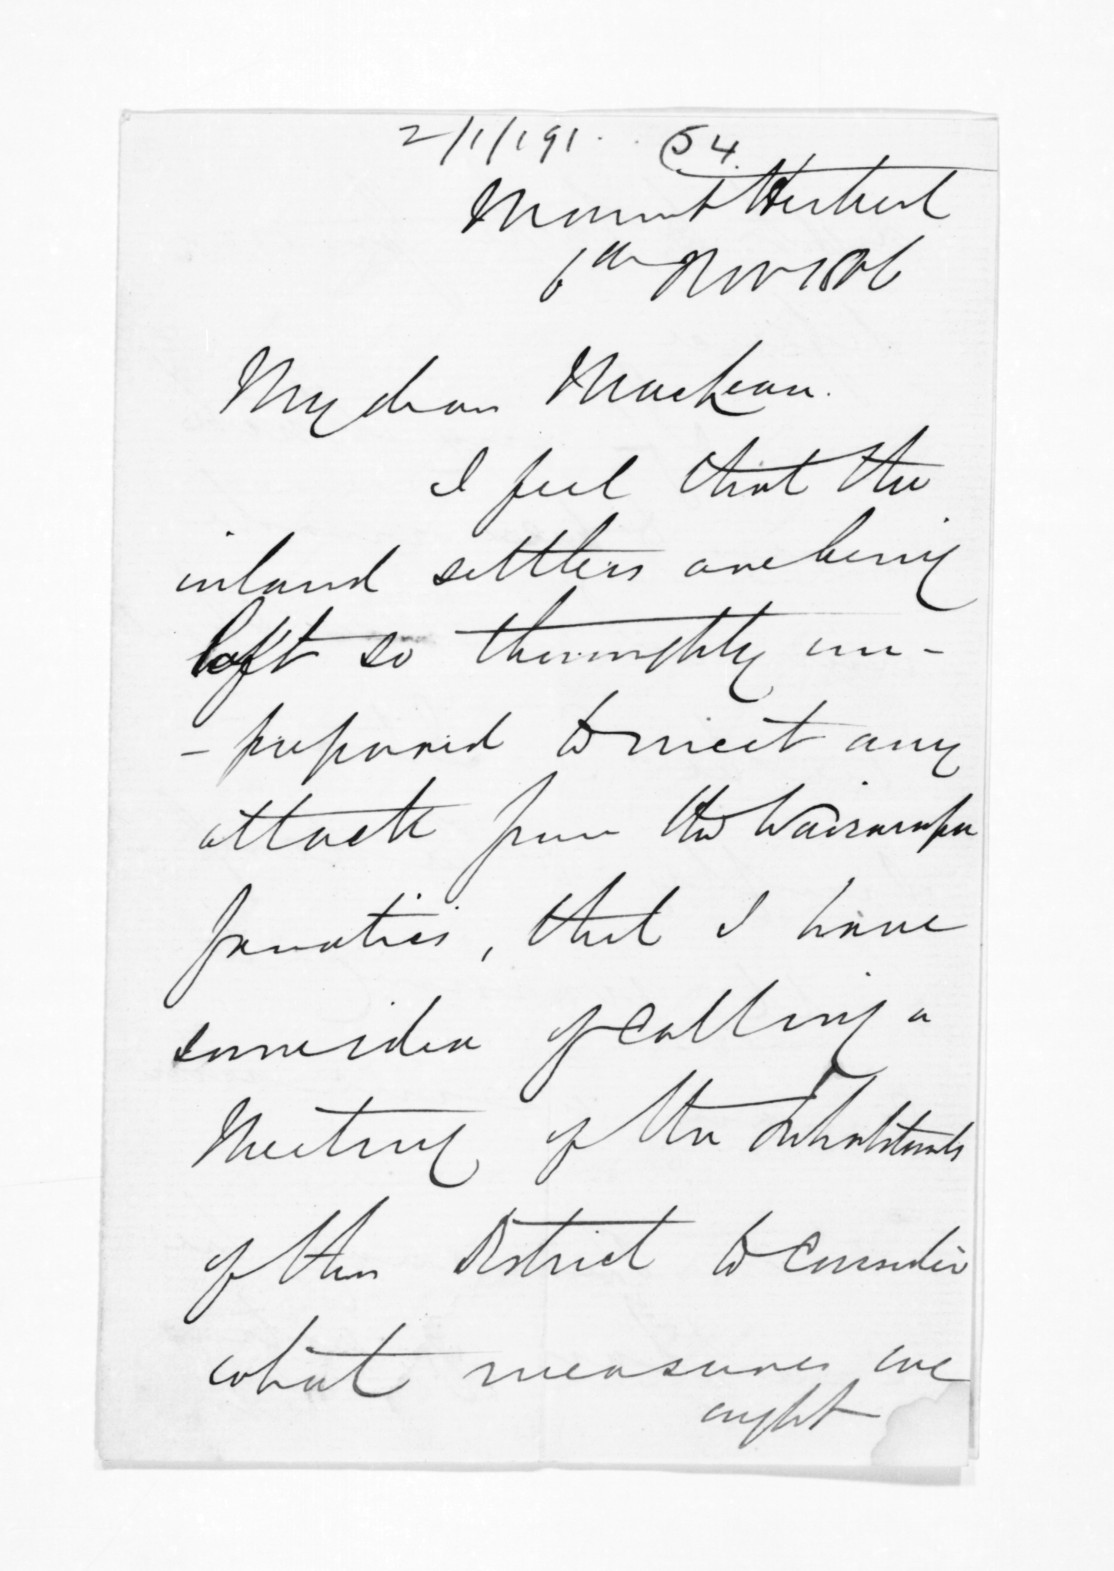 2/1/191. 54.
Mount Herbert
6th Nov 1866
My dear MacLean.
I feel that the
inland settlers are being
left so thoroughly un-
-prepared to meet any
attack from the Wairarapa
fanatics, that I have
some idea of calling a
Meeting of the Inhabitants
of this District to consider
what measures we
ought